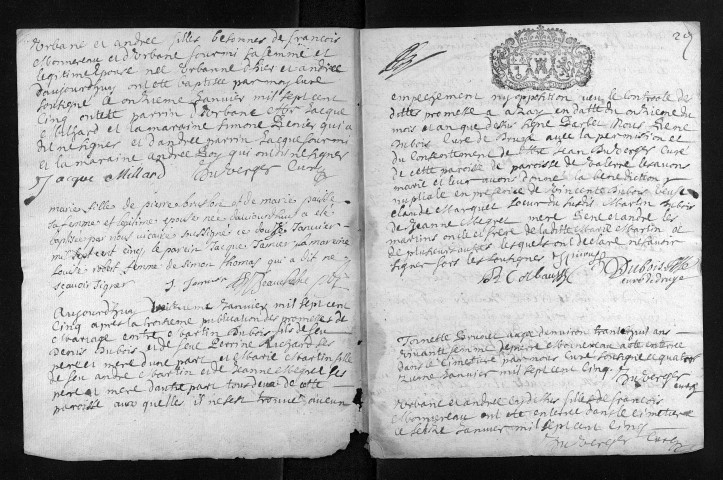 Urbane et andree filles bessonnes de françois
Monnereau et d'Urbane fourmi sa femme et
legitime epouse nee Urbanne hier et andree
d'aujourd'huy ont ete baptise par moy cure
soussigne le onzieme Janvier mil sept cent
cinq ont ete parrin d'Urbane est Jacque
Millard et la maraine Simone qui a
dit ne signer et d'andree parrin Jacque fourmi
et la maraine andree qui ont dit ne signer
Jacque Millard Duverger Curé
marie fille de pierre et de marie
sa femme et legitime epouse nee d'aujourd'huy a ete
baptisee par nous vicaire soussigne ce douze Janvier
mil sept cent cinq, le parrin Jacque Janvier la mareine
Louise robert femme de Simon Thomas qui a dit ne
sçavoir signer J. Janvier
Aujourd'huy Janvier mil sept cent
cinq apres la troisieme publication des promesses de
Mariage entre Martin Dubois fils de feu
Denis Dubois et de feu Perrine Richard ses
pere et mere d'une part et Marie Martin fille
de feu andre Martin et de Jeanne Megret ses
pere et mere d'autre part tous deux de cette
paroisse aux quelles il ne s'est trouvé aucun
25
empeschement ny opposition veu le controle de
dittes promesse a azay en datte du onzieme du
mois et an que dessus signé Nous René
Dubois Curé de avec la permission et
du Consentement de Mre Jean Duverger Curé
de cette paroisse de paroisse de valere les avons
marié et leur avons donné la benediction
nuptiale en presence de vincente Dubois veufe
Claude Marquet soeur du susdit Martin Dubois
de Jeanne Megret mere René et andre les
martins oncle et frere de laditte Marie Martin et
de plusieurs autres lesquels ont declaré ne savoir
signer fors les soussignes
Dubois
curé de
Tonnette Brunet aagee d'environ trante huit ans
vivante femme de pierre Monnereau a ete enterree
dans le cimetiere par nous Curé soussigné le quator
zieme Janvier mil sept cent cinq
Duverger curé
Urbane et andree cy dessus filles de françois
Monnereau ont ete enterré dans le cimetiere
ce seize Janvier mil sept cent cinq
Duverger Curé